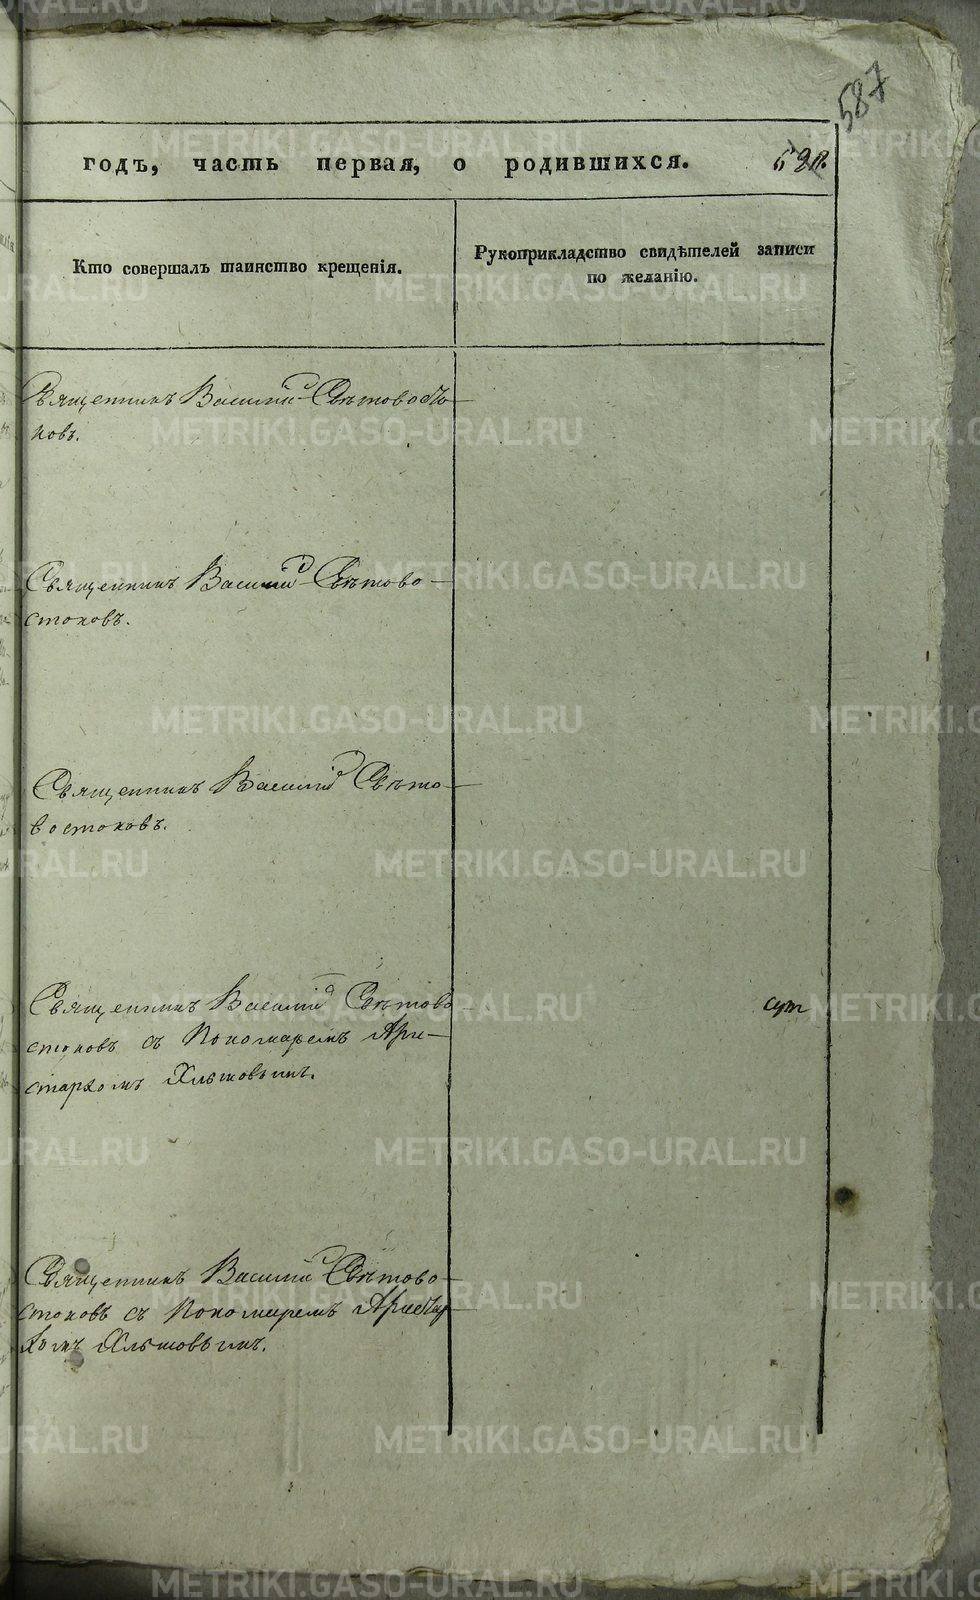 587
годъ, часть первая, о родившихся.
Кто совершалъ таинство крещенія.
Рукоприкладство свидѣтелей записи
по желанію.
Священникъ Василий Свѣтовосто-
ковъ.
Священникъ Василий Свѣтово-
стоковъ.
Священникъ Василий Свѣто-
востоковъ.
Священникъ Василий Свѣтово-
стоковъ съ Пономаремъ Ари-
стархомъ Хлѣтовымъ.
Священникъ Василий Свѣтово-
стоковъ съ Пономаремъ Аристар
хомъ Хлѣтовымъ.
METRIKI.GASO-URAL.RU